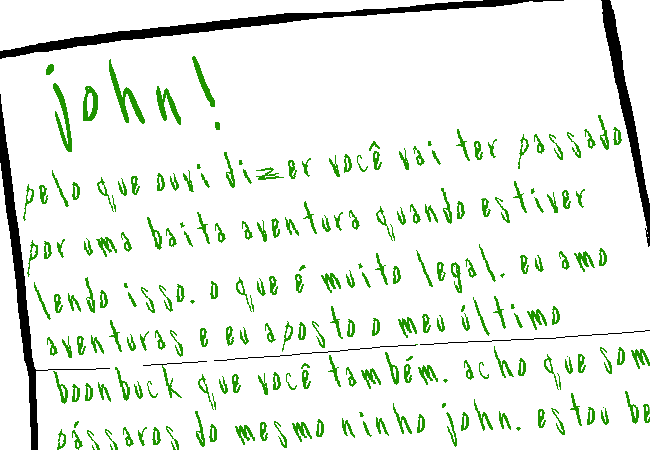 john!
pelo que ouvi dizer você vai ter passado
por uma baita aventura quando estiver
lendo isso. o que é muito legal. eu amo
aventuras e eu aposto o meu último
boonbuck que você também. acho que som
pássaros do mesmo ninho john. estou be